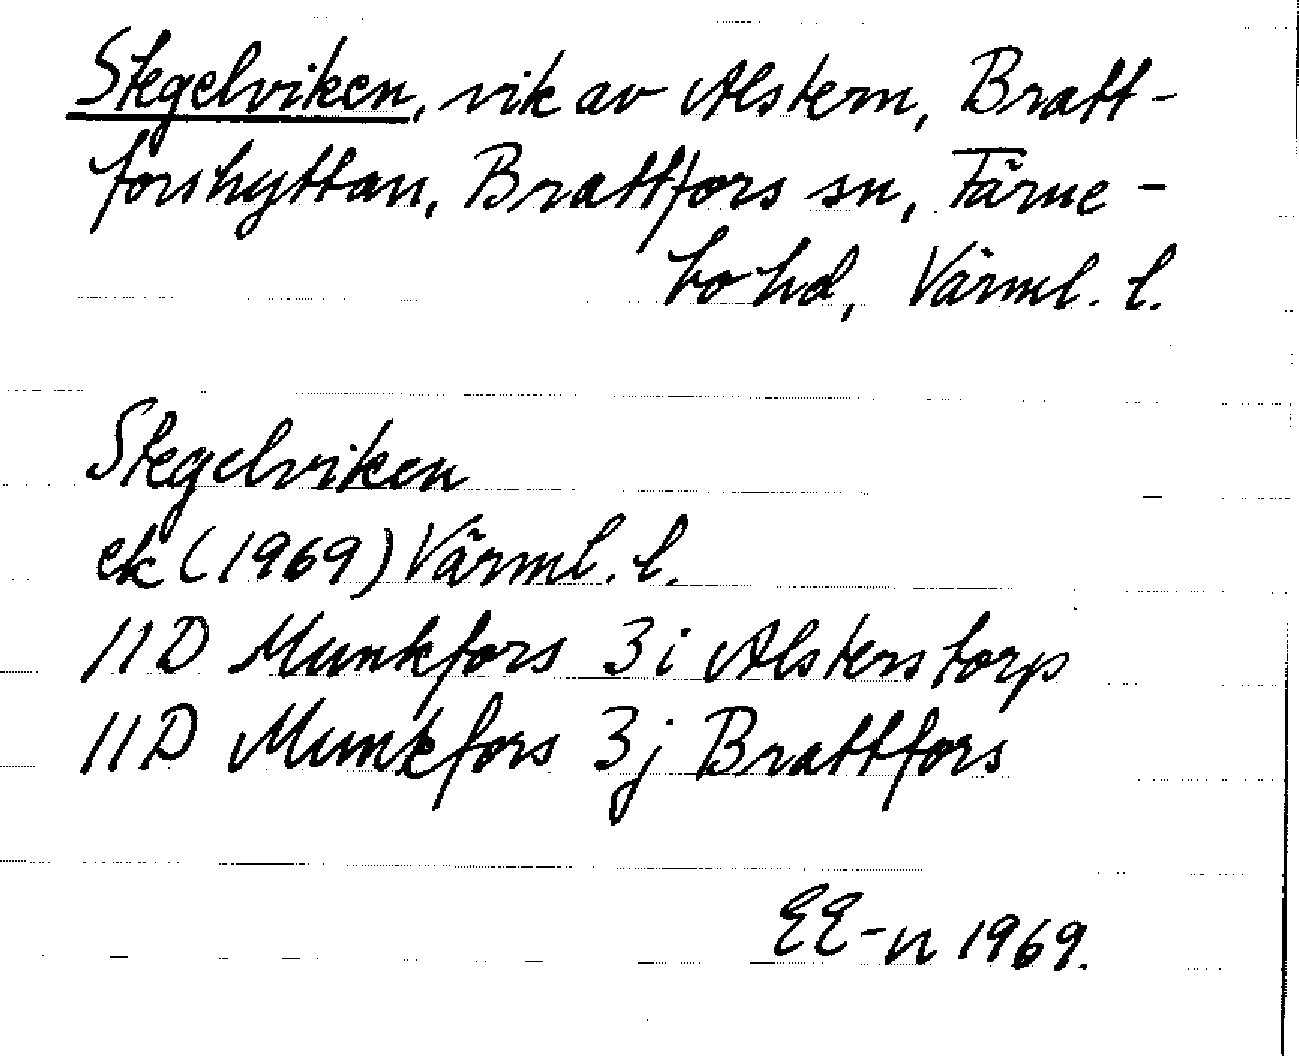 Stegelviken, vik av Alstern, Bratt-
forshyttan, Brattfors sn, Färne-
bo hd, Värml. l.
Stegelviken
ek (1969) Värml. l.
11D Munkfors 3i Alsterstorp
11D Munkfors 3j Brattfors
EE-n 1969.